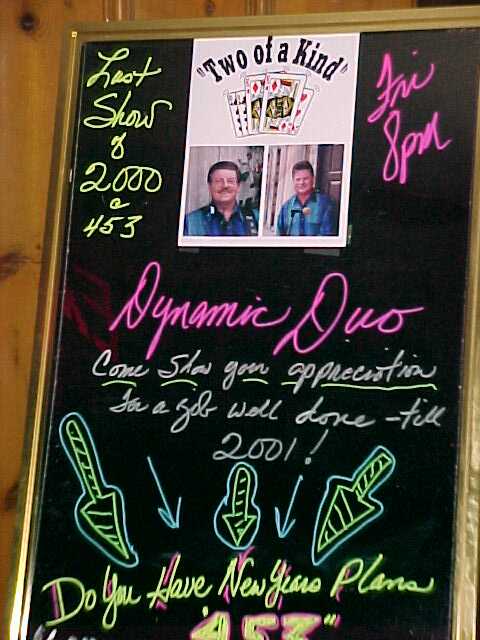 Last
Show
of
2000
@
453
"Two of a Kind"
Fri
8pm
Dynamic Duo
Come Show your appreciation
For a job well done - till
2001!
Do You Have New Years Plans
"453"